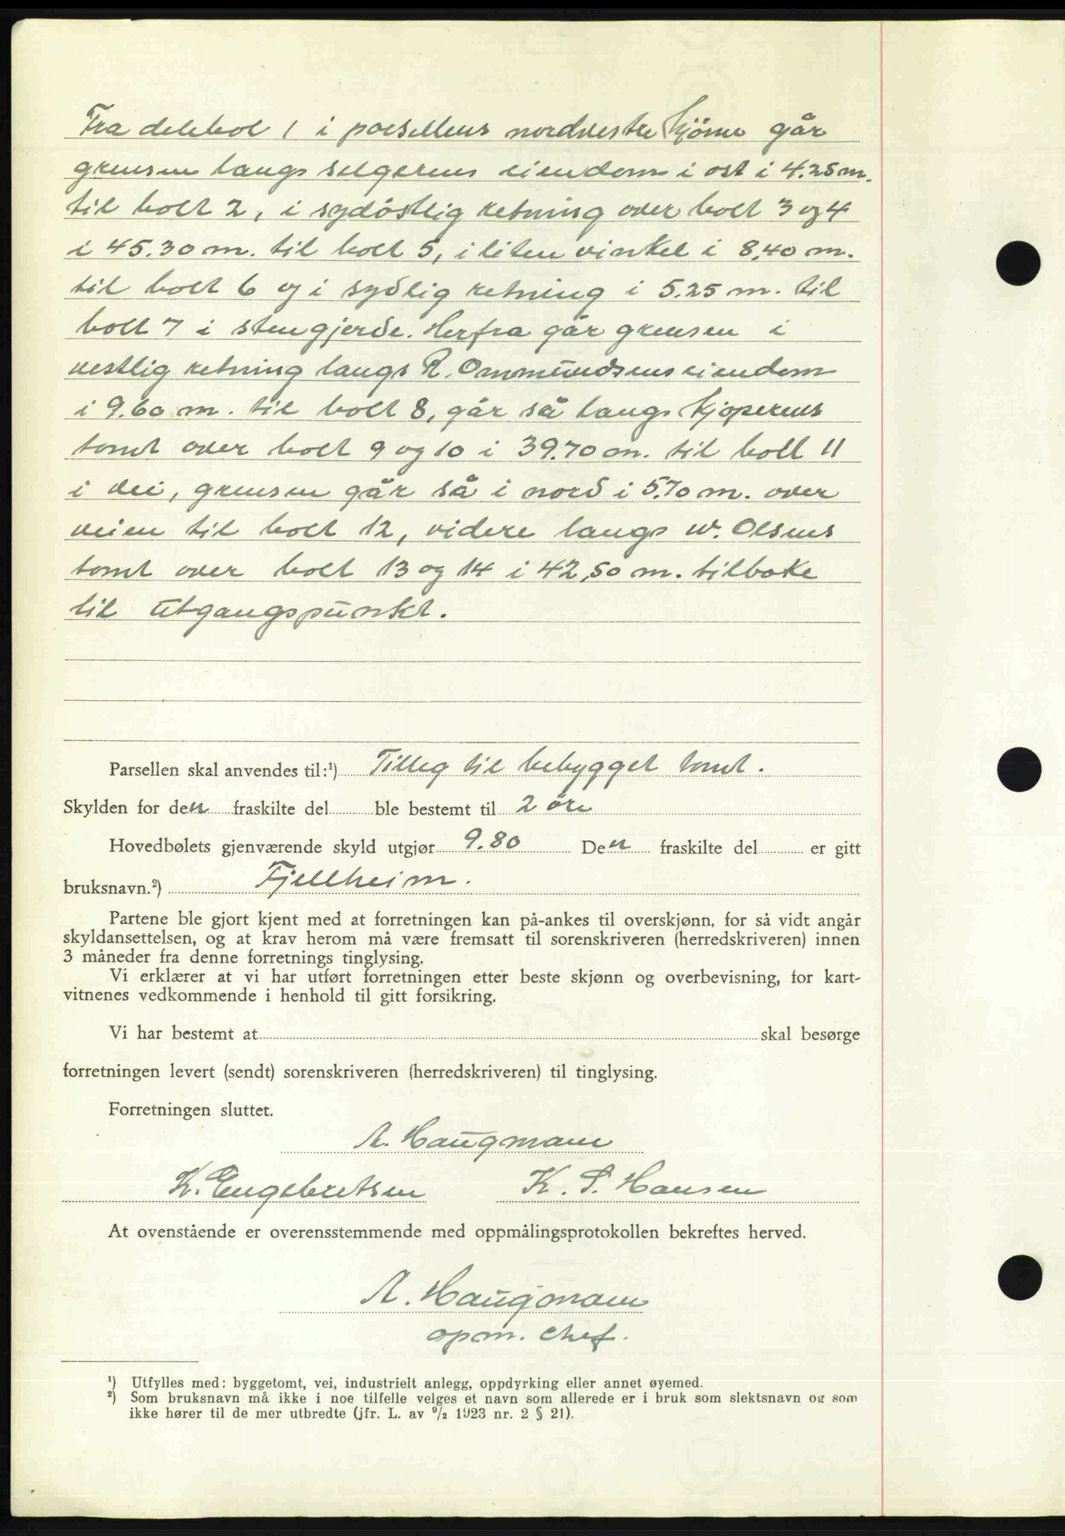 Fra delebol 1 i parsellens nordvestre hjörne går
grensen langs selgerens eiendom i ost i 4.25 m.
til bolt 2, i sydöstlig retning over bolt 3 og 4
i 45.30 m. til bolt 5, i liten vinkel i 8,40 m.
til bolt 6 og i sydlig retning i 5.25 m. til
bolt 7 i stengjerde. Herfra går grensen i
vestlig retning langs R. Ommundsens eiendom
i 9.60 m. til bolt 8, går så langs kjoperens
tomt over bolt 9 og 10 i 39.70 m. til bolt 11
i vei, grensen går så i nord i 5.70 m. over
veien til bolt 12, videre langs W. Olsens
tomt over bolt 13 og 14 i 42,50 m. tilbake
til utgangspunkt.
Parsellen skal anvendes til:¹) Tilleg til bebygget tomt.
Skylden for den fraskilte del ble bestemt til 2 öre
Hovedbølets gjenværende skyld utgjør 9.80 Den fraskilte del er gitt
bruksnavn.²) Fjellheim.
Partene ble gjort kjent med at forretningen kan på-ankes til overskjønn, for så vidt angår
skyldansettelsen, og at krav herom må være fremsatt til sorenskriveren (herredskriveren) innen
3 måneder fra denne forretnings tinglysing.
Vi erklærer at vi har utført forretningen etter beste skjønn og overbevisning, for kart-
vitnenes vedkommende i henhold til gitt forsikring.
Vi har bestemt at skal besørge
forretningen levert (sendt) sorenskriveren (herredskriveren) til tinglysing.
Forretningen sluttet.
A. Haugmann
K. Engebretsen K. S. Hansen
At ovenstående er overensstemmende med oppmålingsprotokollen bekreftes herved.
A. Haugmann
opm. chef.
¹) Utfylles med: byggetomt, vei, industrielt anlegg, oppdyrking eller annet øyemed.
²) Som bruksnavn må ikke i noe tilfelle velges et navn som allerede er i bruk som slektsnavn og som
ikke hører til de mer utbredte (jfr. L. av ⁹/₂ 1923 nr. 2 § 21).